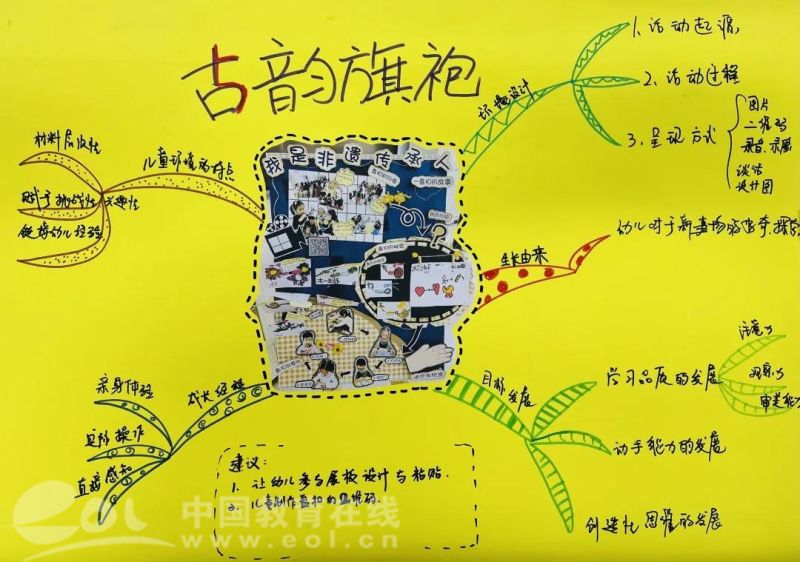 古韵旗袍
环境设计
1、活动起源
2、活动过程
3、呈现方式
图片
二维码
录音、录像
谈话
设计图
我是非遗传承人
儿童环境的特点
材料层次性
赋予挑战性
支持幼儿经验
生长由来
幼儿对于新事物的好奇、探究
成长经验
亲身体验
实际操作
直接感知
目标发展
学习品质的发展
注意力
观察力
审美能力
动手能力的发展
创造性思维的发展
建议:
1. 让幼儿参与展板设计与粘贴.
2. 儿童制作盘扣的二维码.
eol 中国教育在线
www.eol.cn